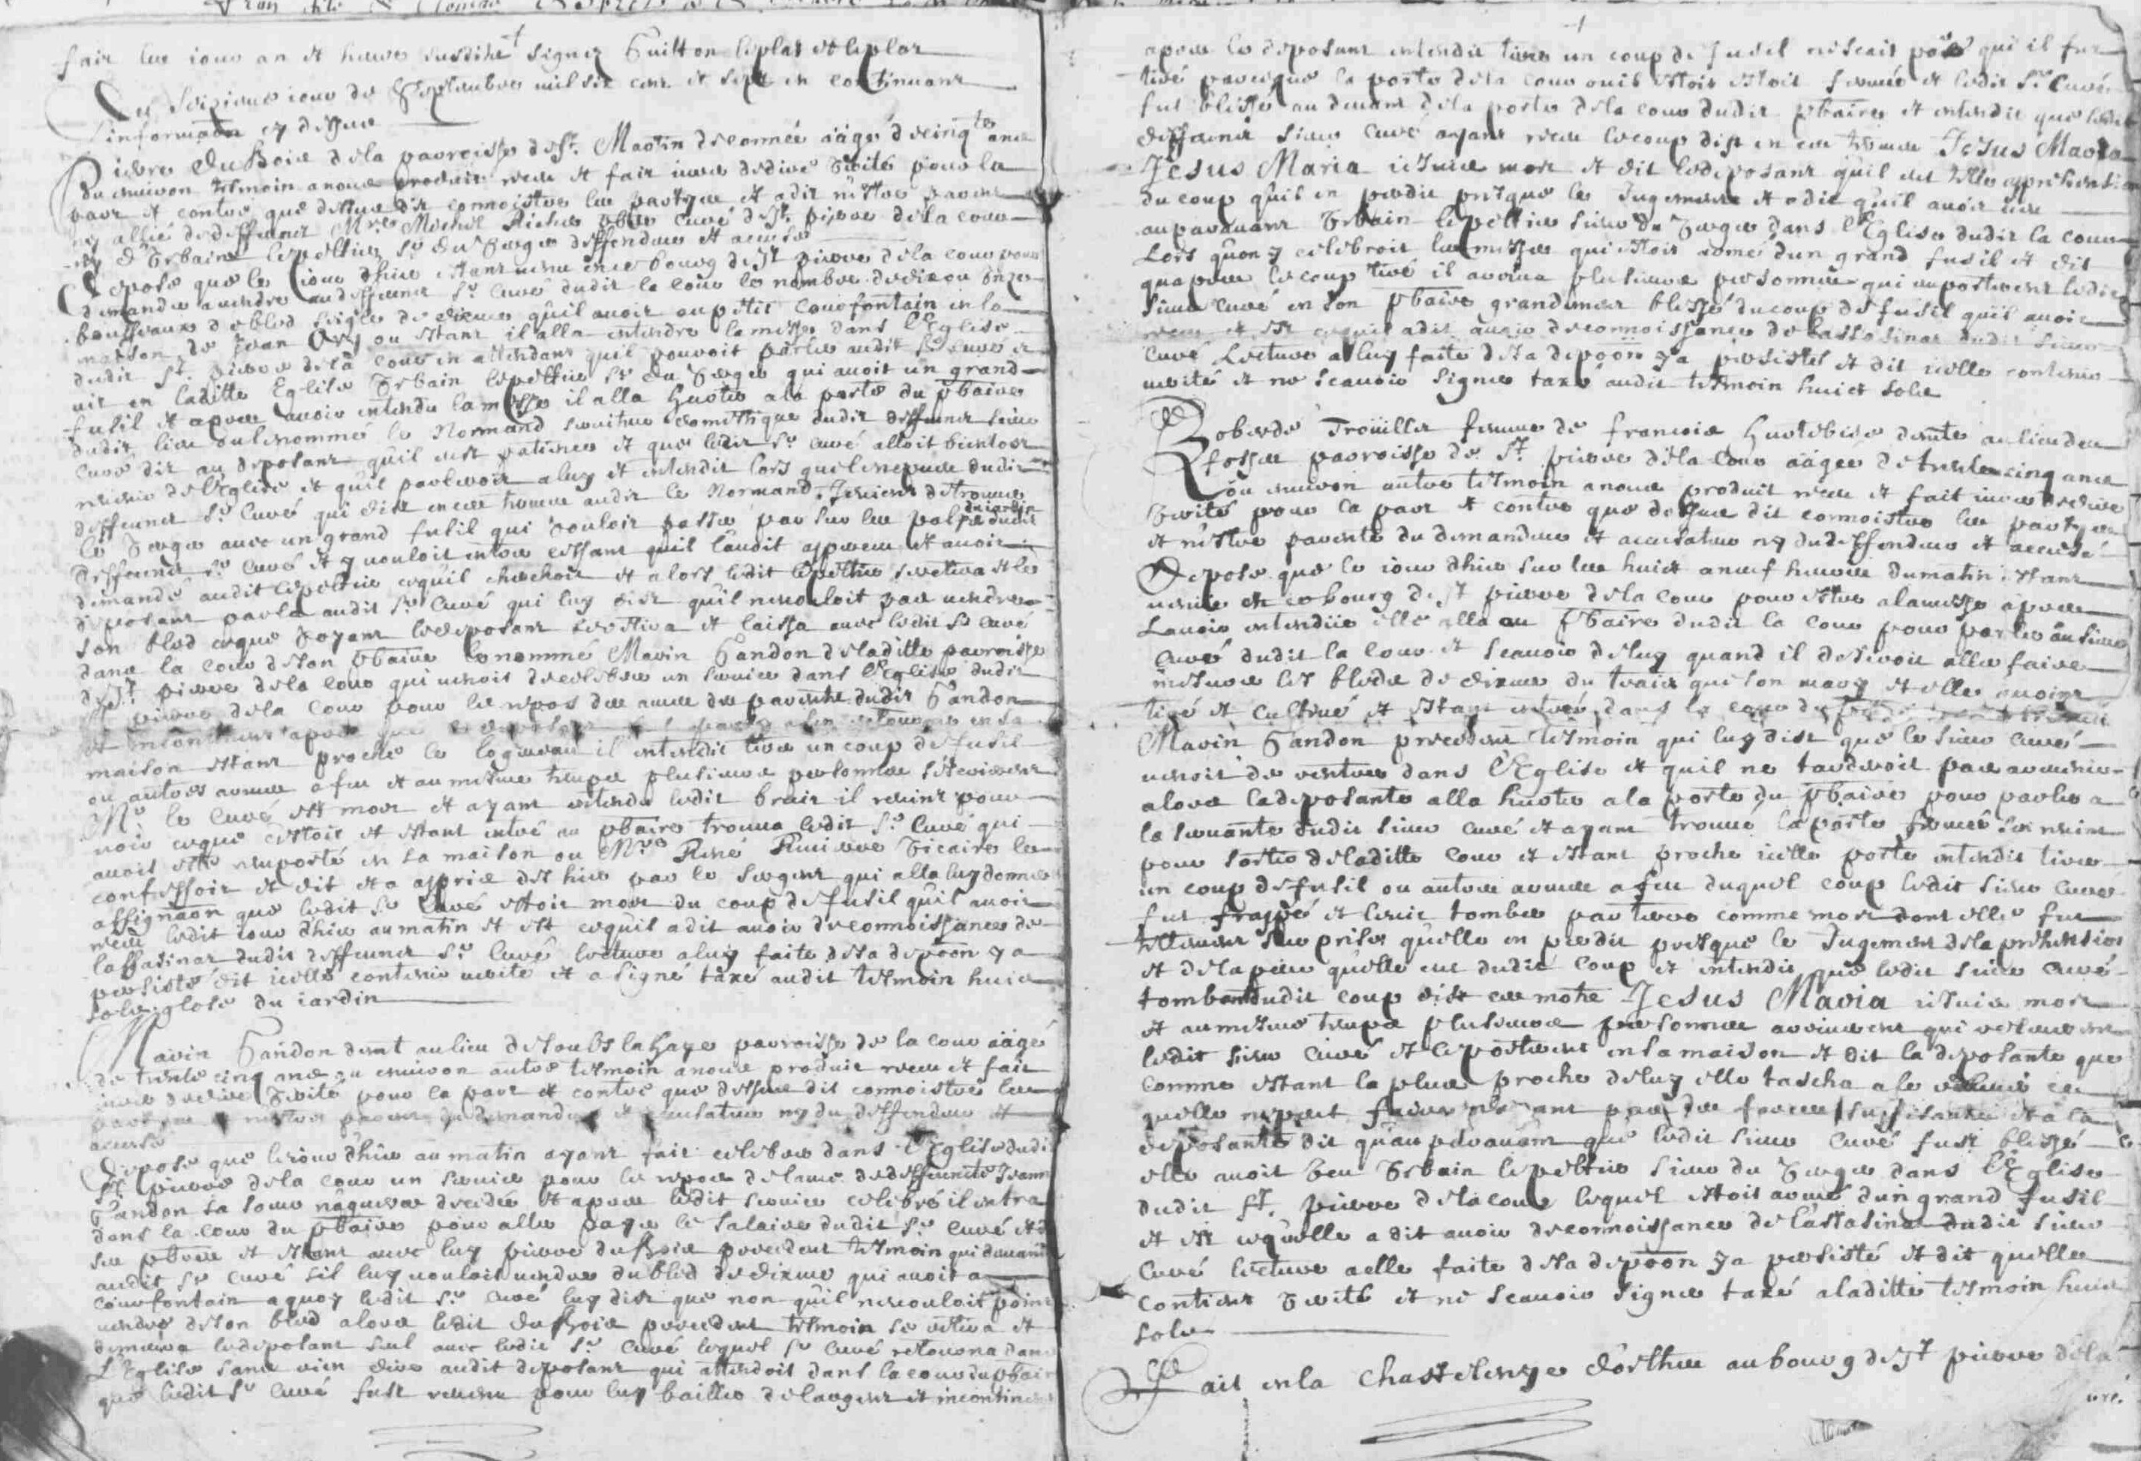 fait les jour an et heures susdits signez Guitton leplat et leplat
Du seiziesme jour de Septembre mil six cent et sept en continuant
l'information cy dessus
Pierre DuBois de la parroisse de St. Martin de connée aagé de cinqte ans
ou environ tesmoin a nous produit receu et fait jurer de dire verité pour la
part et contre que dessus dit connoistre les partyes et a dit n'estre parent
ny allié de deffunct Mre Michel prbre curé de St. pierre de la cour
ny d'Urbain lepeltier Sr du deffendeur et accusé
Depose que le jour d'hier estant venu en ce bourg de St pierre de la cour pour
demander a vendre au deffunct Sr curé dudit la cour le nombre de dix ou onze
bousseaux de bled seigle de dixme qu'il avoit au petit Courfontain en la
maison de Jean ou estant il alla entendre la messe dans l'Eglise
dudit St. pierre de la cour en attendant qu'il pouvoit parler audit Sr curé et
vit en laditte Eglise Urbain lepeltier Sr du qui avoit un grand
fusil et apres avoir entendu la messe il alla heurter a la porte du pbaire
dudit lieu ou le nommé le Normand serviteur domestique dudit deffunct sieur
curé dit au deposant qu'il eust patience et que ledit Sr curé alloit bientost
revenir de l'Eglise et qu'il parleroit a luy et entendit lors
deffunct Sr Curé qui dist en ces termes audit le Normand. Je viens de trouver
le avec un grand fusil qui vouloit passer par sur les palis du jardin dudit
deffunct Sr curé et y vouloit entrer disant qu'il l'audit apperceu et avoir
demandé audit lepeltier ce qu'il cherchoit et alors ledit lepeltier se retira et le
deposant parla audit Sr Curé qui luy dist qu'il ne vouloit pas vendre
son bled ce que voyant le deposant se retira et laissa avec ledit Sr curé
dans la cour de son pbaire le nommé Marin Gandon de laditte parroisse
de St. pierre de la cour qui venoit de celebrer un service dans l'Eglise dudit
St pierre de la cour pour le repos des ames des parents dudit Gandon
et incontinent apres que le deposant
maison estant proche le il entendit tirer un coup de fusil
ou autres armes a feu et au mesme temps plusieurs personnes s'écrierent
Mr le Curé est mort et ayant entendu ledit bruit il revint pour
voir ce que c'estoit et estant entré au pbaire trouva ledit Sr. Curé qui
avoit esté emporté en sa maison ou Mre René vicaire le
confessoit et dit et a appris dès hier par le sergent qui alla luy donner
assignaon que ledit Sr Curé estoit mort du coup de fusil qu'il avoit
receu ledit jour d'hier au matin et est ce qu'il a dit avoir de connoissance de
l'assasinat dudit deffunct Sr Curé lecture a luy faite de sa depoon y a
persisté dit icelle contenir verité et a signé taxé audit tesmoin huict
sols. glose du jardin
Marin Gandon demt au lieu de la Haye parroisse de la cour aagé
de trente cinq ans ou environ autre tesmoin a nous produit receu et fait
jurer de dire verité pour la part et contre que dessus dit connoistre les
partyes et n'estre parent du demandeur et accusateur ny du deffendeur et
accusé
Depose que le jour d'hier au matin ayant fait celebrer dans l'Eglise dudit
St. pierre de la cour un service pour le repos de lame de deffuncte Jeanne
Gandon sa soeur decedée et apres ledit service celebré il entra
dans la cour du pbaire pour aller payer le salaire dudit Sr. Curé et
ses pbres et estant avec luy pierre duBois precedent tesmoin qui demanda
audit Sr curé sil luy vouloit vendre du bled de dixme qui avoit a
Courfontain a quoy ledit Sr. curé luy dist que non qu'il ne vouloit point
vendre de son bled alors ledit duBois precedent tesmoin se retira et
demeura le deposant seul avec ledit Sr. Curé lequel Sr Curé retourna dans
L'Eglise sans rien dire audit deposant qui attendoit dans la cour du pbaire
que ledit Sr Curé fust revenu pour luy bailler de largent et incontinent
apres le deposant entendit tirer un coup de fusil ne scait pas qui il fut
tiré parceque la porte de la cour ou il estoit estoit fermée et ledit Sr. Curé
fut blessé au devant de la porte de la cour dudit pbaire et entendit que ledit
deffunct sieur Curé ayant receu le coup dist en ces termes Jesus Maria
Jesus Maria je suis mort et dit le deposant qu'il eut telle apprehension
du coup qu'il en perdit presque le Jugement et a dit qu'il avoit veu
auparavant Urbain lepeltier sieur du dans l'Eglise dudit la cour
Lors qu'on y celebroit les messes qui estoit armé d'un grand fusil et dit
qu'apres le coup tiré il arriva plusieurs personnes qui emporterent ledit
sieur Curé en son pbaire grandement blessé du coup de fusil qu'il avoit
receu et est ce qu'il a dit avoir de connoissance de l'assasinat dudit sieur
Curé Lecture a luy faite de sa depoon y a persisté et dit icelle contenir
verité et ne scavoir signer taxé audit tesmoin huict sols
Roberde Troüiller femme de francois Heurtebise demte au lieu des
fosses parroisse de St. pierre de la cour aagée de trente cinq ans
ou environ autre tesmoin a nous produit receu et fait jurer de dire
verité pour la part et contre que dessus dit connoistre les partyes
et n'estre parente du demandeur et accusateur ny du deffendeur et accusé
Depose que le jour d'hier sur les huict a neuf heures du matin estant
venüe en ce bourg de St pierre de la cour pour estre a la messe apres
Lavoir entendüe elle alla au pbaire dudit la cour pour parler au sieur
Curé dudit la cour et scavoir de luy quand il desiroit aller faire
mesurer les bleds de dixme du traict que son mary et elle avoint
tiré et cultivé et estant entrée dans la cour du
Marin Gandon precedent tesmoin qui luy dist que le sieur curé
venoit de rentrer dans l'Eglise et quil ne tarderoit pas a revenir
alors la deposante alla heurter a la porte du pbaire pour parler a
la servante dudit sieur curé et ayant trouvé la porte fermée s'en revint
pour sortir de laditte cour et estant proche icelle porte entendit tirer
un coup de fusil ou autres armes a feu duquel coup ledit sieur curé
fut frappé et le vit tomber par terre comme mort dont elle fut
tellement surprise qu'elle en perdit presque le Jugement de la prehension
et de la peur qu'elle eut dudit coup et entendit que ledit sieur curé
tombant dudit coup dist ces mots Jesus Maria je suis mort
et au mesme temps plusieurs personnes arriverent qui releverent
ledit sieur curé et le porterent en sa maison et dit la deposante que
comme estant la plus proche de luy elle tascha a le relever ce
quelle ne peut faire n'ayant pas des forces suffisantes et a la
deposante dit qu'auparavant que ledit sieur curé fust blessé
elle avoit veu Urbain lepeltier sieur du dans l'Eglise
dudit St. pierre de la cour lequel estoit armé d'un grand fusil
et est ce qu'elle a dit avoir de connoissance de l'assasinat dudit sieur
Curé lecture a elle faite de sa depoon y a persisté et dit quelle
contient verité et ne scavoir signer taxé a laditte tesmoin huict
sols
Fait en la Chastelenye d'orthes au bourg de St pierre de la